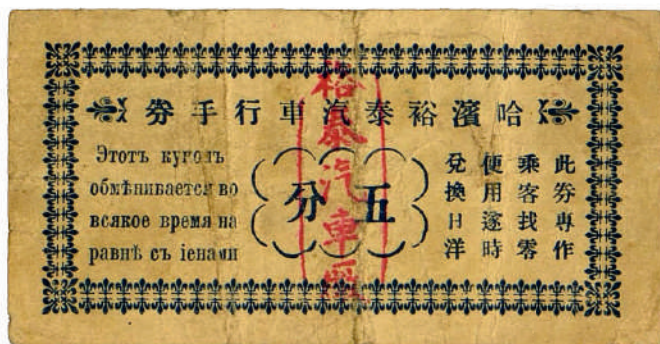 哈濱裕泰汽車行手券
Этотъ купонъ
обмѣнивается во
всякое время на
равнѣ съ іенами
五分
此券專作
乘客找零
使用遂時
兌換日洋
裕泰汽車